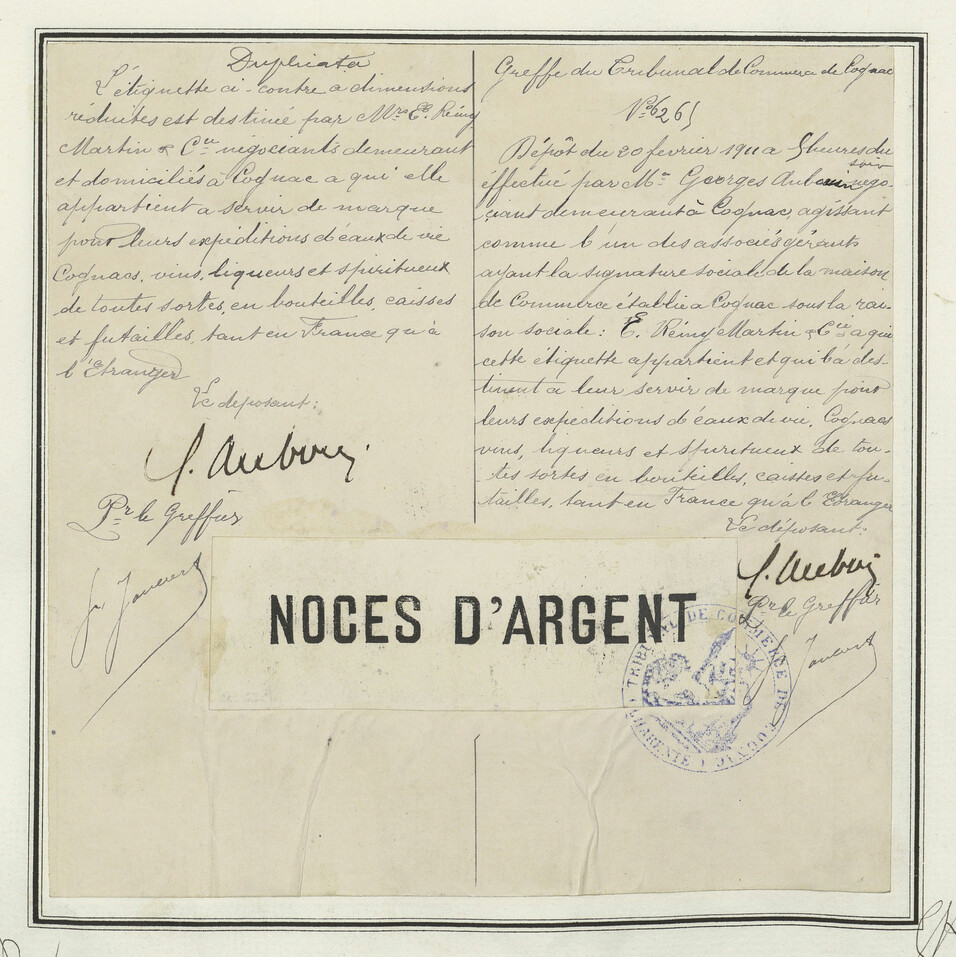 Duplicata
L'étiquette ci-contre a dimensions
réduites est destinée par Mrs E. Rémy
Martin & Cie négociants demeurant
et domiciliés à Cognac a qui elle
appartient a servir de marque
pour leurs expéditions d'eaux de vie
Cognacs, vins, liqueurs et spiritueux
de toutes sortes, en bouteilles, caisses
et futailles, tant en France qu'à
l'Etranger
Le déposant:
Pr le Greffier
Greffe du Tribunal de Commerce de Cognac
No 6265
Dépôt du 20 février 1911 a 5 heures du
soir
effectué par Mr Georges Auboin négo-
ciant demeurant à Cognac, agissant
comme l'un des associés gérants
ayant la signature sociale de la maison
de Commerce établie a Cognac sous la rai-
son sociale: E. Rémy Martin & Cie a qui
cette étiquette appartient et qui la des-
tinent a leur servir de marque pour
leurs expéditions d'eaux de vie, Cognacs
vins, liqueurs et spiritueux de tou-
tes sortes en bouteilles, caisses et fu-
tailles, tant en France qu'à l'Etranger
Le déposant:
Pr le Greffier
NOCES D'ARGENT
TRIBUNAL DE COMMERCE DE COGNAC
(CHARENTE)